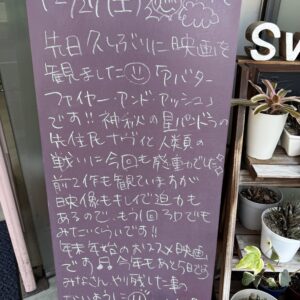 12/27(土)
先日久しぶりに映画を
観ました 「アバター
ファイヤー・アンド・アッシュ」
です!! 神秘の星パンドラの
先住民ナヴィと人類の
戦いに今回も感動でした
前2作も観ていますが
映像もキレイで迫力も
あるので、もう1回3Dでも
みたいくらいです!!
年末年始のおススメ映画
です♫ 今年もあと5日ほど
みなさんやり残した事の
ないように
SW